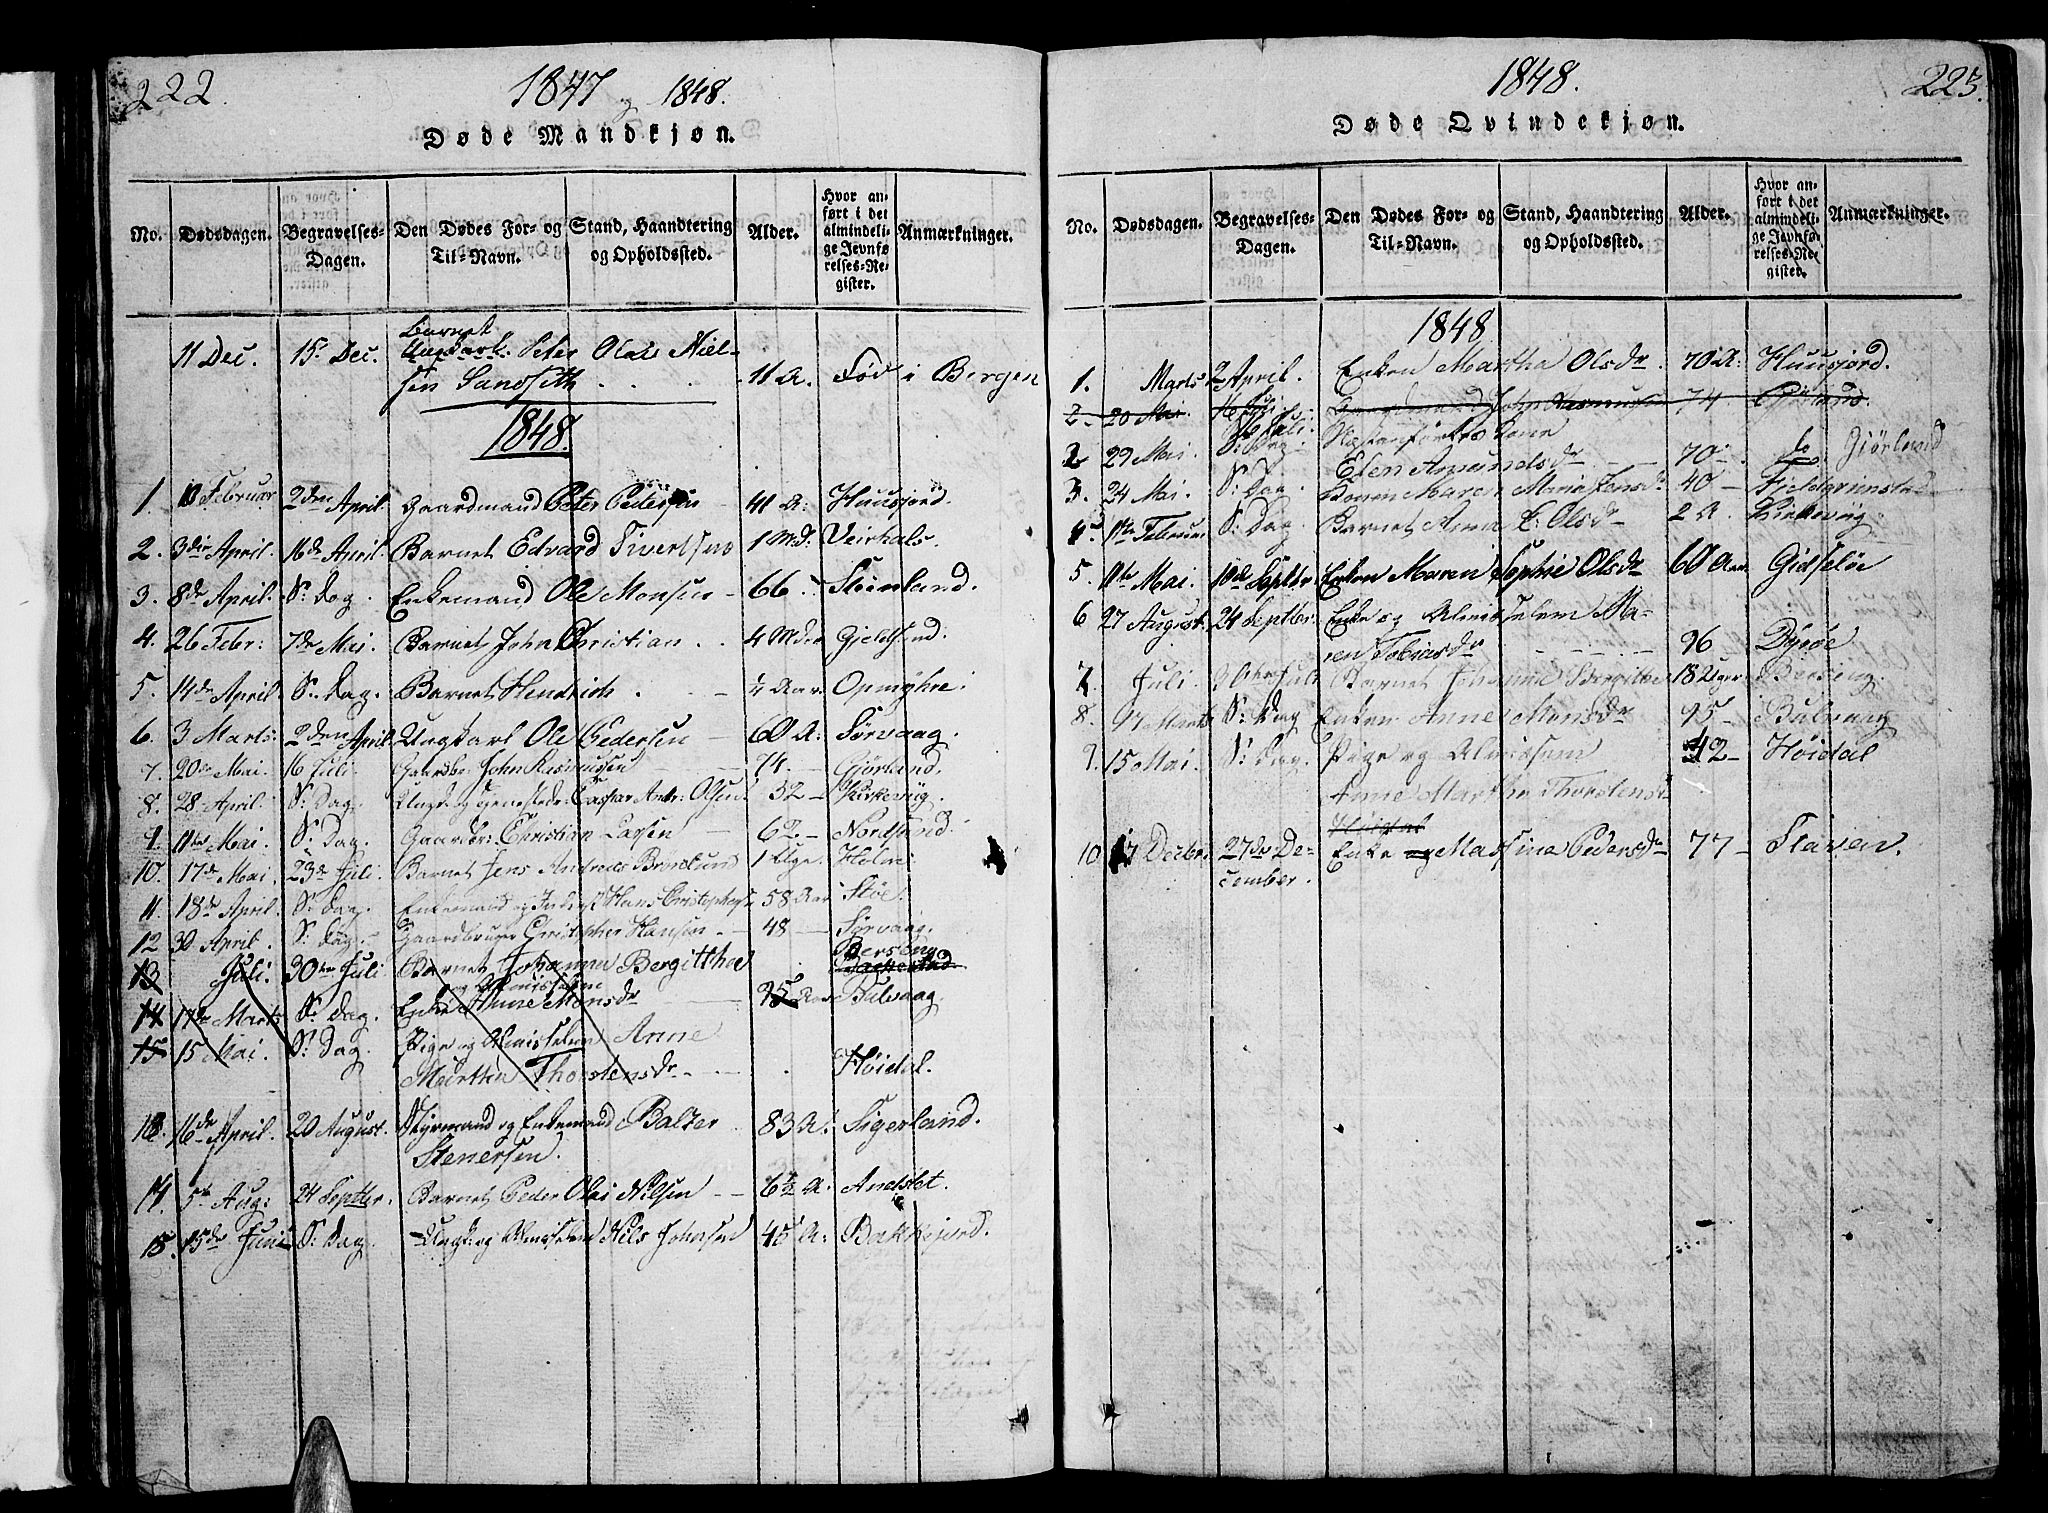 222.
1847 og 1848.
Døde Mandkjøn.
No. Dødsdagen. Begravelses-Dagen. Den Dødes For- og Til-Navn. Stand, Haandtering og Opholdssted. Alder. Hvor anført i det almindelige Jevnførelses-Register. Anmærkninger.
Barnet
11 Dec. 15. Dec. Ungkarl. Peter Olai Niel-
sen Sandseth . . . . 11 A. Fød i Bergen
1848.
1 10 Februar 2den April. Gaardmand Peter Pedersen 41 A: Huusjord.
2. 3die April. 16de April. Barnet Edvard Sivertsen 1 Md: Veirhals.
3. 8de April. S: Dag. Enkemand Ole Monsen - 66 - Steinland.
4. 26 Febr: 7de Mai. Barnet John Christian . . 4 Mdr Gjeldsund.
5. 14de April S: Dag. Barnet Hendrich . - - 4 Aar. Opmyhre.
6. 3 Marts: 2den April. Ungkarl Ole Pedersen - 60 A: Sørvaag.
7. 20de Mai. 16 Juli. Gaardbr. John Rasmussen 74. - Gjørland.
8. 28 April. S: Dag. Ungk. og Tjenestedr: Caspar Andr: Olsen 32 - Kirkevig.
9. 11te Mai. S: Dag. Gaardbr: Christian Larsen - 62. - Nordsund.
10. 17de Mai. 23de Juli. Barnet Jens Andreas Brodlund 1 Uge. Holm
11 18de April. S: Dag. Enkemand og Inderst Hans Christophersen 58 Aar Støe.
12 30 April. S: Dag. Gaardbruger Christopher Hansen - 48 - Sørvaag.
Berseng
13 Juli. 30te Juli Barnet Johanna Bergitthe
og Almisselem
14 17de Marts S: Dag. Enke Anne Monsdr - 95 Aar Bulvaag.
15 15 Mai. S: Dag. Pige og Almisselem Anne
Marthea Thorstensdr - - - . Høidal.
13. 16de April. 20 August. Styrmand og Enkemand Balzer 83 A: Tigerland.
Stenersen.
14. 5te Aug: 24 Septber. Barnet Peder Olai Nilsen - - 6½ A. Andslet.
15. 15de Juni S: Dag. Ungk: og Almisselem Nils Johnsen 45 A: Bakkejord.
1848.
223.
Døde Qvindekjøn.
No. Dødsdagen. Begravelses-Dagen. Den Dødes For- og Til-Navn. Stand, Haandtering og Opholdssted. Alder. Hvor anført i det almindelige Jevnførelses-Register. Anmærkninger.
1848
1. Marts 2 April. Enken Martha Olsdr 70 A: Huusjord.
2 20 Mai. 16 Juli Gaardmand John Rasmussen 74 Gjørland.
16 Juli.
2 29 Mai. Kone
Elen Amundsdr - - 70 - Gjørland
3. 24 Mai. S: Dag. Konen Maren Maria Jensdr 40 - Fieldgrimstad
4 11te Februar S: Dag Barnet Anna E: Olsdr 2 A. Kirkevig
5. 11te Mai. 10de Septbr. Enken Maren Sophie Olsdr 60 Aar. Gidseløe
6 27 August. 24 Septber. Enke og Almisselem Ma-
ren Tobiasdr - - - - - 96 Dyrøe
7. Juli. 30te Juli Barnet Johanne Bergitthe 18 Uger Berseng.
8. 17 Marts S: Dag Enken Anne Monsdr 95 - Bulvaag
9. 15 Mai. S: Dag. Pige og Almissem 42 - Høidal
Anne Marthe Thorstensdr
10 17 Decbr. 27de De- Enke og Massine Pedersdr 77 - Flaven.
cember.